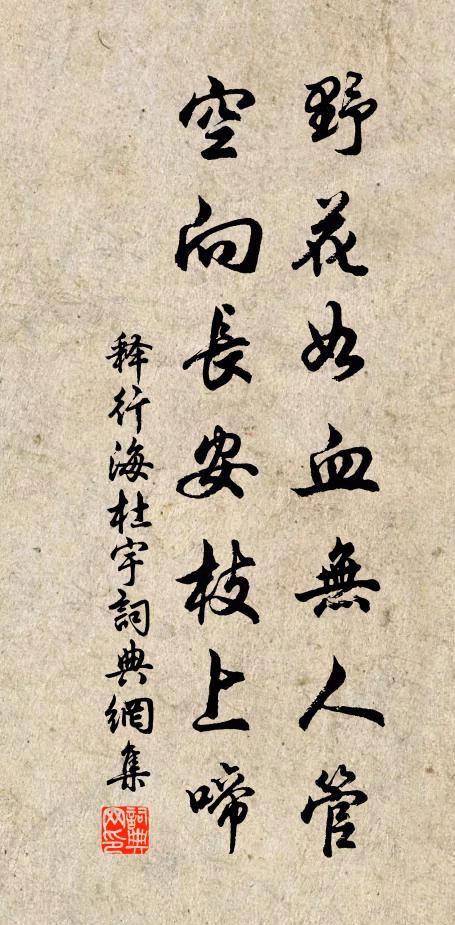 野花如血無人管
空向長安枝上啼
释行海杜宇詞典網集
詞典网印